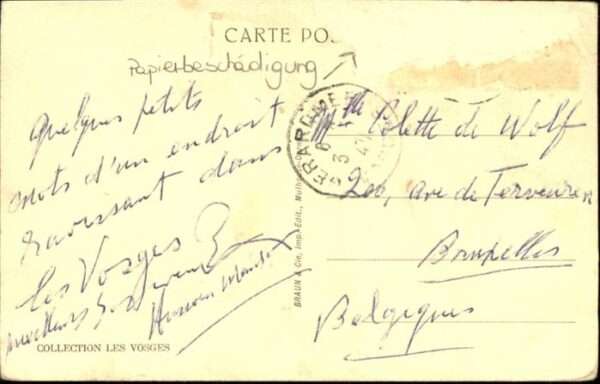 CARTE PO
Papierbeschädigung
Quelques petits
mots d'un endroit
ravissant dans
les Vosges
Meilleurs Souvenirs
COLLECTION LES VOSGES
BRAUN & Cie, Imp.-Edit., Mulhouse
GERARDMER
Mlle Colette de Wolf
200, ave de Tervueren
Bruxelles
Belgiques